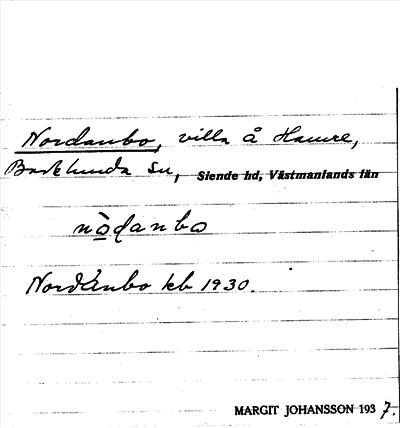 Nordanbo, villa å Hamre,
Barkhunda sn, Siende hd, Västmanlands län
nòdanbo
Nordånbo kb 1930.
MARGIT JOHANSSON 1937.